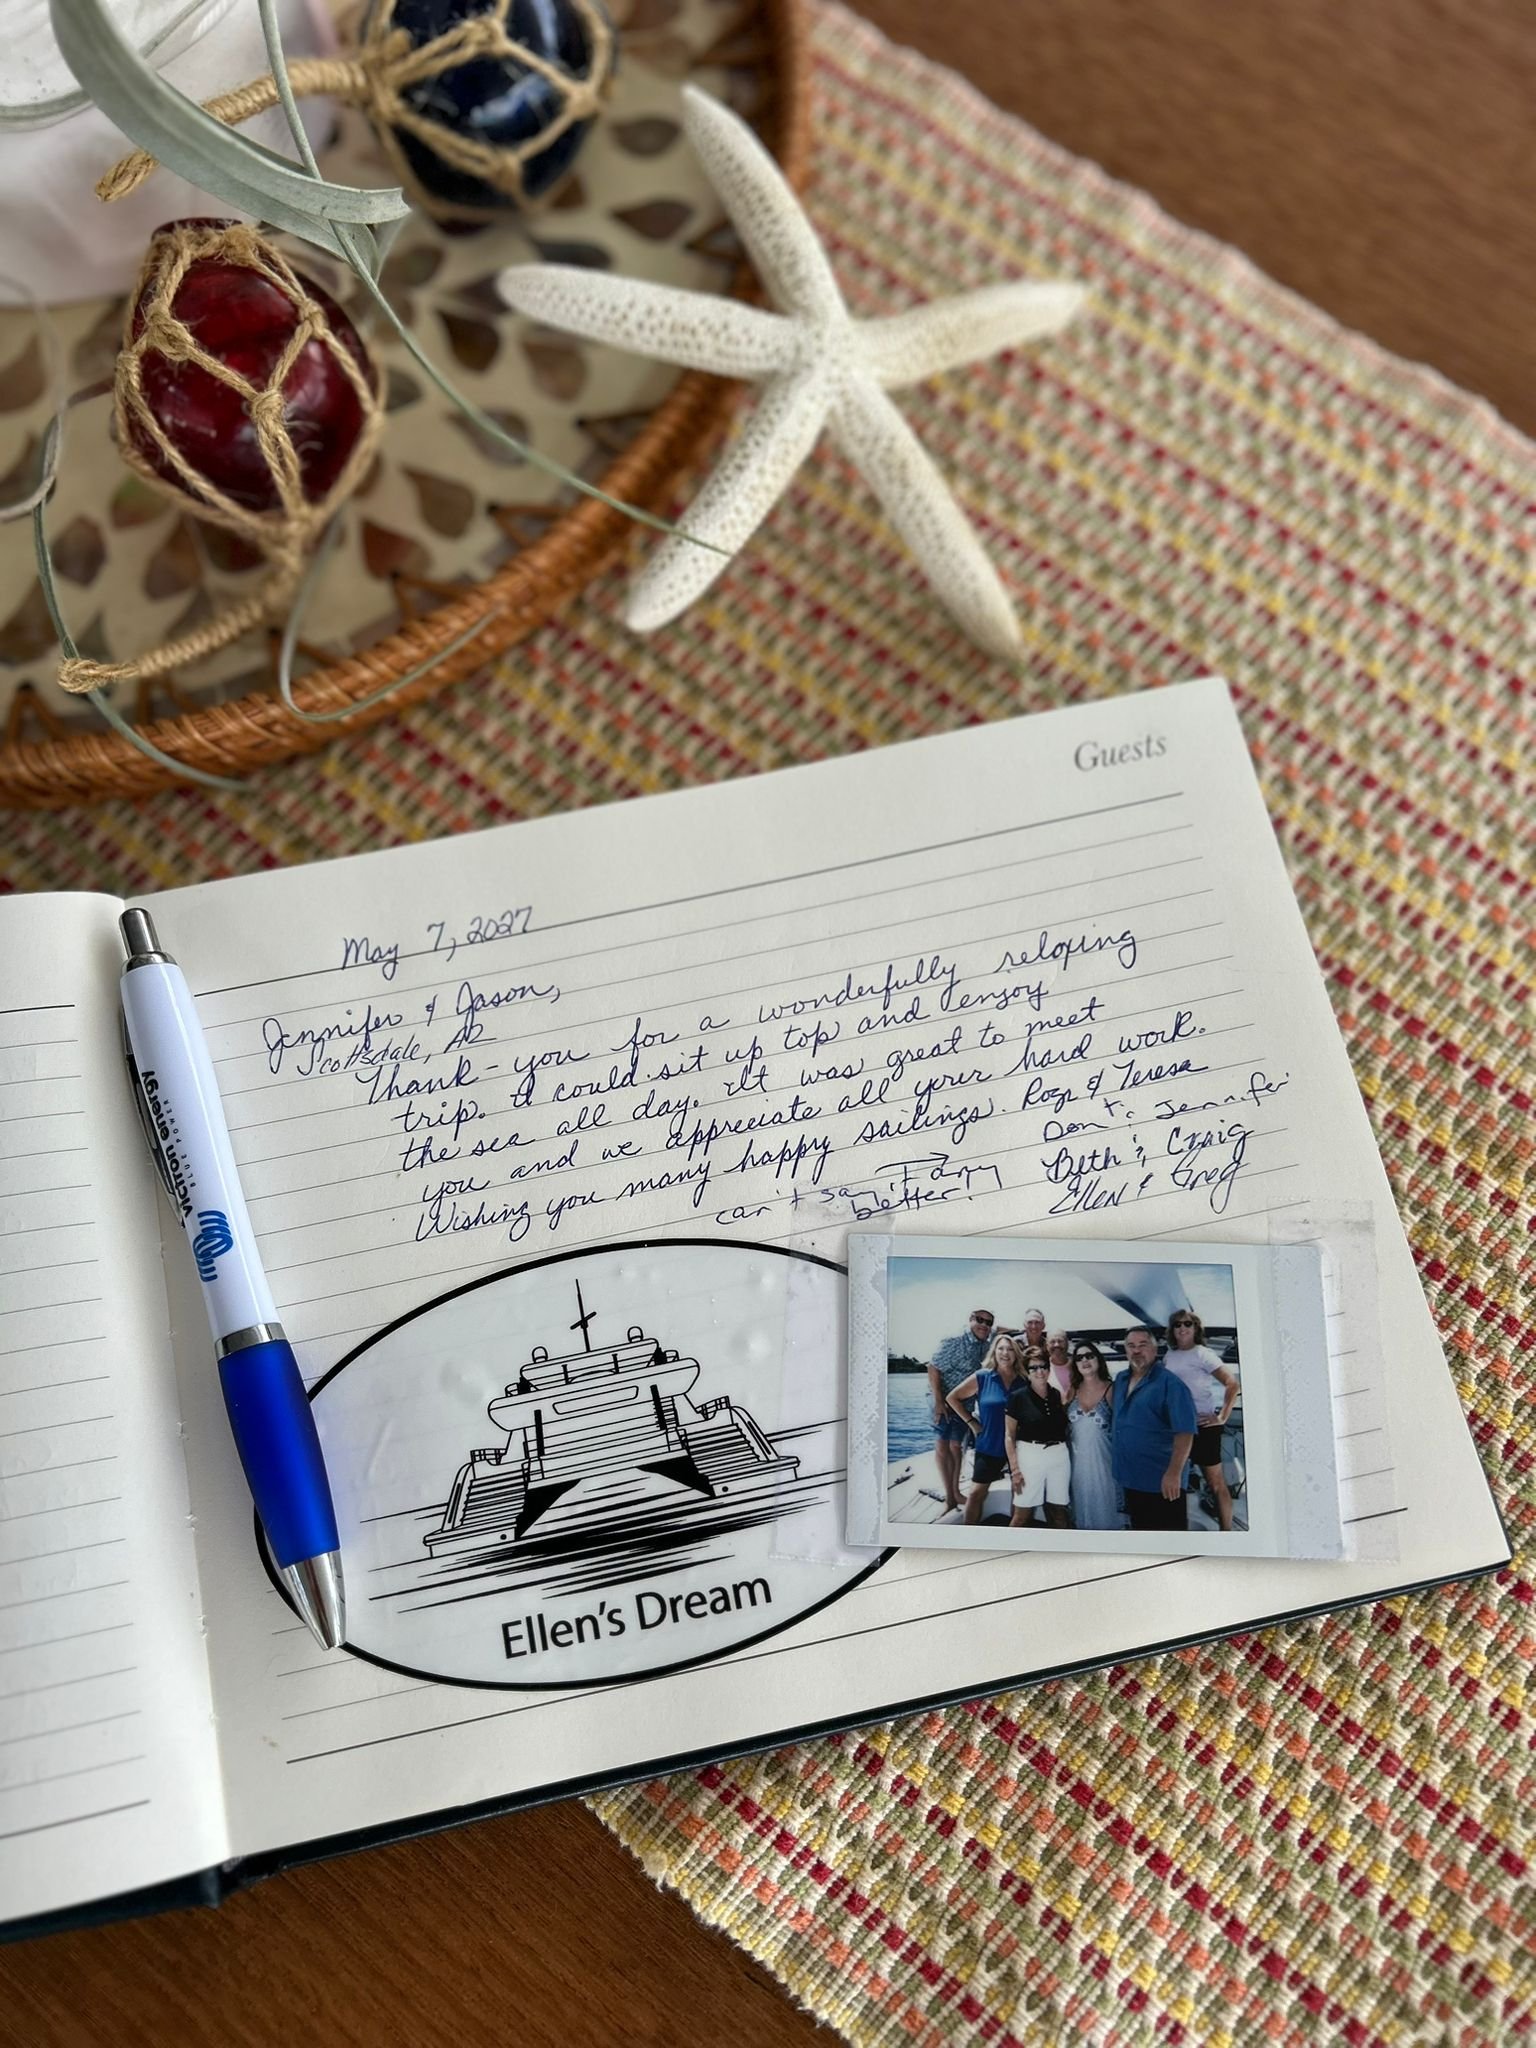 Guests
May 7, 2027
Jennifer & Jason,
Scottsdale, AZ
Thank-you for a wonderfully relaxing
trip. I could sit up top and enjoy
the sea all day. It was great to meet
you and we appreciate all your hard work.
Wishing you many happy sailings. & Teresa
Don + Jennifer
can't say it any
better!
Beth & Craig
Ellen & Greg
Ellen's Dream
victron energy
BLUE POWER